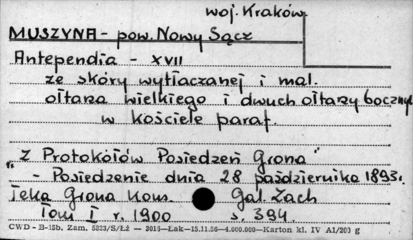 woj. Kraków
MUSZYNA - pow. Nowy Sącz
Antependia - XVII
ze skóry wytłaczanej i mal.
ołtarza wielkiego i dwuch ołtarzy bocznyc
w kościele paraf.
"Z Protokółów Posiedzeń Grona"
- Posiedzenie dnia 28 października 1893r.
Teka Grona Kons. Gal. Zach
Tom I r. 1900 s. 394.
CWD - B-15b. Zam. 5823/S/Ł2 - 3016-Łak-15.11.56-4.000.000-Karton kl. IV A1/200 g